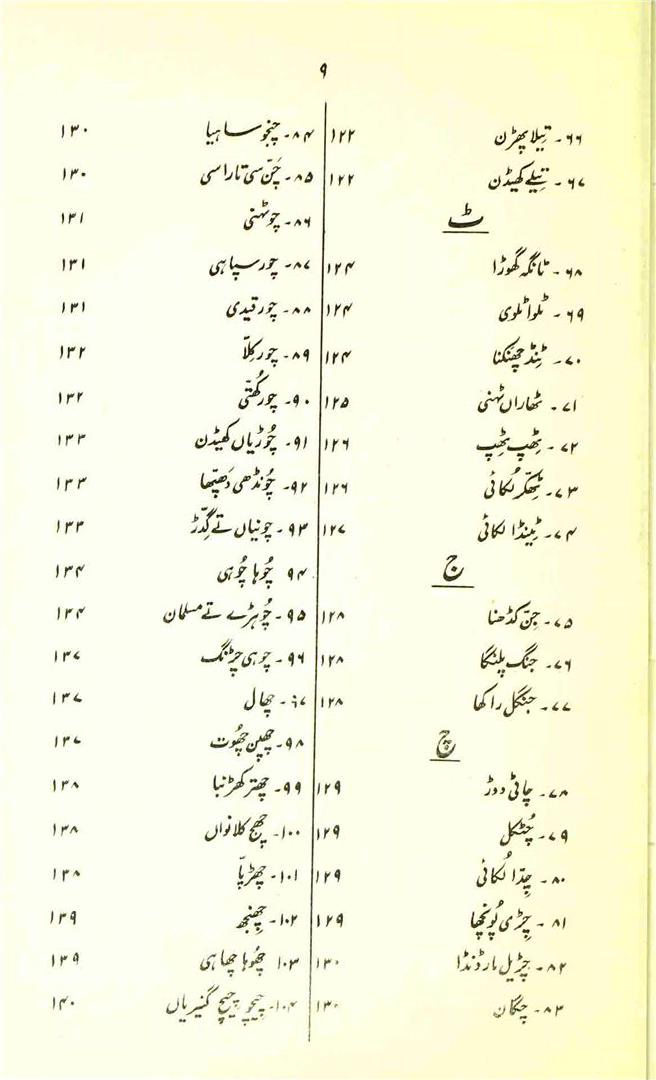 ۹
۶۶۔ تیلا پھڑن ۱۲۲
۶۷۔ تیلے کھیڈن ۱۲۲
ٹ
۶۸۔ ٹانگہ گھوڑا ۱۲۴
۶۹۔ ٹلوا ٹلوی ۱۲۴
۷۰۔ ٹِنڈ چھنکنا ۱۲۴
۷۱۔ ٹھاراں ٹہنی ۱۲۵
۷۲۔ ٹھِپ ٹھِپ ۱۲۶
۷۳۔ ٹھِکر لُکائی ۱۲۶
۷۴۔ ٹینڈا لکائی ۱۲۷
ج
۷۵۔ جِنّ کڈھنا ۱۲۸
۷۶۔ جنگ پلنگا ۱۲۸
۷۷۔ جنگل راکھا ۱۲۸
چ
۷۸۔ چاٹی دوڑ ۱۲۹
۷۹۔ چُٹکل ۱۲۹
۸۰۔ چِدّا لُکائی ۱۲۹
۸۱۔ چِڑی پُونچھا ۱۲۹
۸۲۔ چڑیل مار ڈنڈا ۱۳۰
۸۳۔ چکان ۱۳۰
۸۴۔ چنجو ساہیا ۱۳۰
۸۵۔ چَنّ سی تارا سی ۱۳۰
۸۶۔ چوٹہنی ۱۳۱
۸۷۔ چور سپاہی ۱۳۱
۸۸۔ چور قیدی ۱۳۱
۸۹۔ چور کِلّا ۱۳۲
۹۰۔ چور کُھتّی ۱۳۲
۹۱۔ چُوڑیاں کھیڈن ۱۳۳
۹۲۔ چُونڈھی دَھپّھا ۱۳۳
۹۳۔ چونیاں تے گِدّڑ ۱۳۳
۹۴ چُوہا چُوہی ۱۳۴
۹۵۔ چُوہڑے تے مسلمان ۱۳۴
۹۶۔ چوہی چڑنگ ۱۳۷
۹۷۔ چھال ۱۳۷
۹۸۔ چھپن چھُوت ۱۳۷
۹۹۔ چھتر کھڑنبا ۱۳۸
۱۰۰۔ چھج کلانواں ۱۳۸
۱۰۱۔ چھڑپّا ۱۳۸
۱۰۲۔ چِھنجھ ۱۳۹
۱۰۳ چُھوہا چھاہی ۱۳۹
۱۰۴۔ چیچو چیچ گنیریاں ۱۴۰